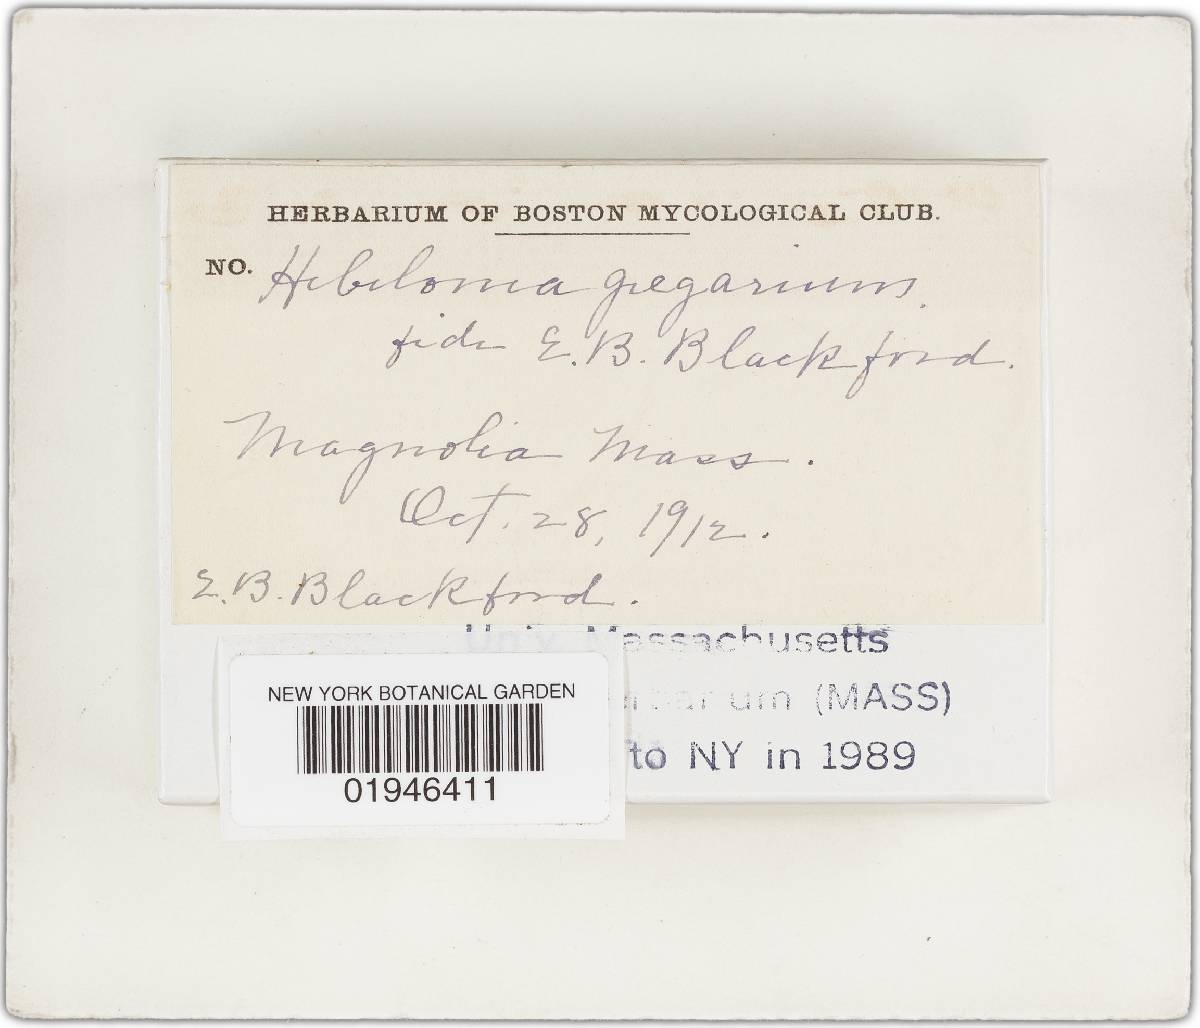 HERBARIUM OF BOSTON MYCOLOGICAL CLUB.
NO. Hebeloma gregarium.
fide E. B. Blackford.
Magnolia Mass.
Oct. 28, 1912.
E. B. Blackford.
Univ. Massachusetts
(MASS)
to NY in 1989
NEW YORK BOTANICAL GARDEN
01946411